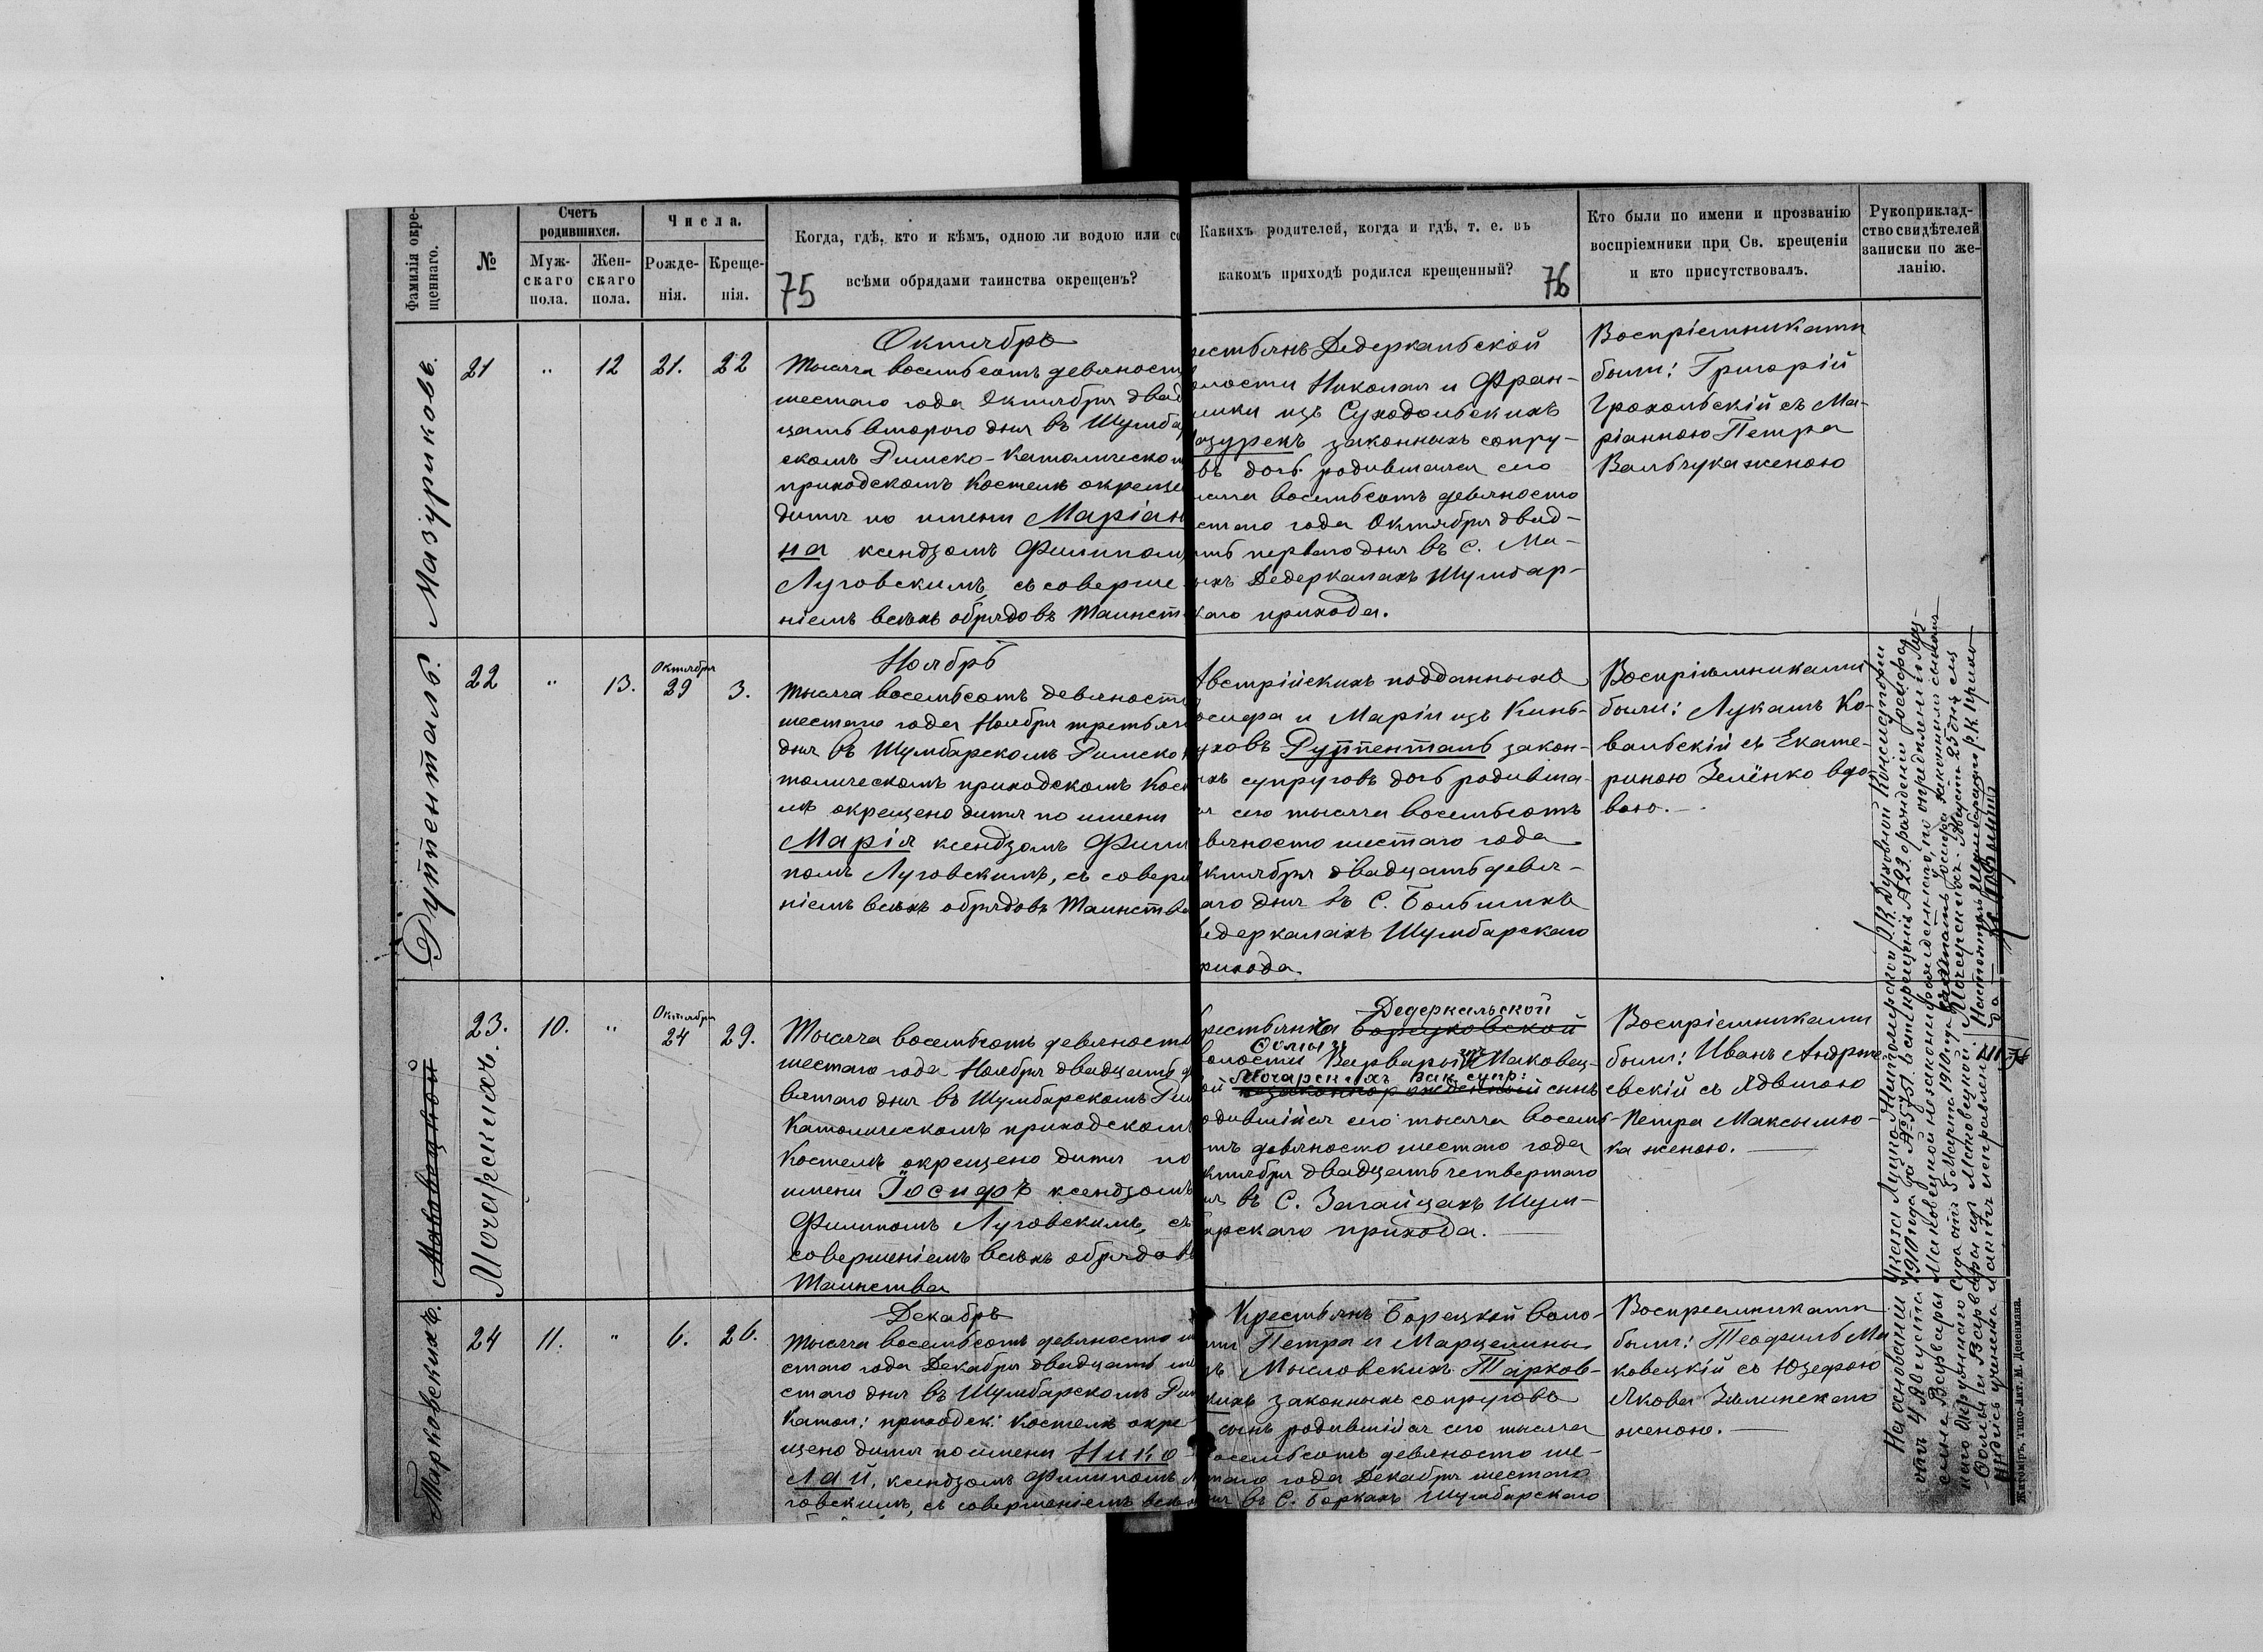 Фамилія окре-
щеннаго.
№
Счетъ
родившихся.
Муж-
скаго
пола.
Жен-
скаго
пола.
Числа.
Рожде-
нія.
Креще-
нія.
Когда, гдѣ, кто и кѣмъ, одною ли водою или со
всѣми обрядами таинства окрещенъ?
75
Какихъ родителей, когда и гдѣ, т. е. въ
какомъ приходѣ родился крещенный?
76
Кто были по имени и прозванію
воспріемники при Св. крещеніи
и кто присутствовалъ.
Рукоприклад-
ство свидѣтелей
записки по же-
ланію.
Мазуриковъ.
21 " 12 21. 22
Октябрь
Тысяча восемьсотъ девяност
шестаго года Октября двад
цать втораго дня въ Шумба
скомъ Римско-Католическом
приходскомъ Костелѣ окреще
дитя по имени Маріан
на ксендзомъ Филиппом
Луговскимъ, съ соверше
ніемъ всѣхъ обрядовъ Таинст
рестьянъ Дедеркальской
олости Николая и Фран-
ишки изъ Суходольскихъ
азурекъ законныхъ супру-
въ дочь родившаяся сего
ысяча восемьсотъ девяносто
стаго года Октября двад-
ать перваго дня въ С. Ма-
ыхъ Дедеркалахъ Шумбар-
каго прихода.
Воспріемниками
были: Григорій
Грохольскій съ Ма-
ріанною Петра
Вальчука женою
Руттенталь.
22 " 13. Октября 29 3.
Ноябрь
Тысяча восемьсотъ девяност
шестаго года Ноября третьяго
дня въ Шумбарскомъ Римско
толическомъ приходскомъ Кост
лѣ окрещено дитя по имени
Марія ксендзомъ Фили
помъ Луговскимъ, съ соверш
ніемъ всѣхъ обрядовъ Таинства
Австрійскихъ подданныхъ
осифа и Маріи изъ Кинь-
уховъ Руттенталь закон-
ыхъ супруговъ дочь родивша-
яся сего тысяча восемьсотъ
евяносто шестаго года
ктября двадцать девя-
таго дня въ С. Большихъ
едеркалахъ Шумбарскаго
рихода.
Воспріемниками
были: Лукашъ Ко-
вальскій съ Екате-
риною Зелёнко вдо-
вою.
Маковецкой
Мочарскихъ.
23. 10. " Октября 24 29.
Тысяча восемьсотъ девяносто
шестаго года Ноября двадцать д
вятаго дня въ Шумбарскомъ Рим
Католическомъ приходскомъ
Костелѣ окрещено дитя по
имени Іосифъ ксендзомъ
Филиппомъ Луговскимъ, съ
совершеніемъ всѣхъ обрядовъ
Таинства
Дедеркальской
рестьянка Борщковской
Ѳомы и
волости Варвары изъ Маковец-
Мочарскихъ зак. супр:
ой незаконнорожденный сынъ
одившійся сего тысяча восемь-
отъ девяносто шестаго года
ктября двадцать четвертаго
ня въ С. Загайцахъ Шум-
арскаго прихода.
Воспріемниками
были: Иванъ Андрже-
евскій съ Ядвигою
Петра Максымю-
ка женою.
На основаніи указа Луцко-Житомірской Р.К. Духовной Консисторіи
отъ 4 Августа 1910 года за № 5751
Тарковскихъ.
24 11. " 6. 26.
Декабрь
Тысяча восемьсотъ девяносто ш
стаго года Декабря двадцать ше
стаго дня въ Шумбарскомъ Рим
Катол: приходск: Костелѣ окре
щено дитя по имени Нико-
лай, ксендзомъ Филиппомъ Л
говскимъ, съ совершеніемъ всѣхъ
Крестьянъ Борецкой воло-
ти Петра и Марцелины
зъ Мысловскихъ Тарков-
кихъ законныхъ супруговъ
сынъ родившійся сего тысяча
осемьсотъ девяносто ше-
таго года Декабря шестаго
ня въ С. Боркахъ Шумбарскаго
Воспреемниками
были: Теофиль Ма
ковецкій съ Юзефою
Якова Зѣлинскаго
женою.
Житоміръ, типо-лит. М. Дененмана.